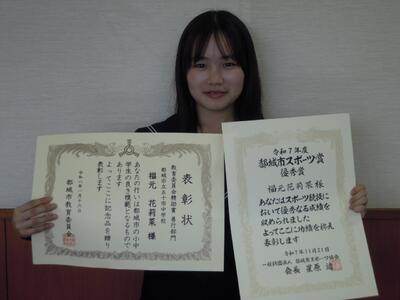 表彰状
教育委員会賛助賞 善行部門
都城市立五十市中学校
福元 花莉菜 様
あなたの行いは都城市の小中
学生の良き模範となるもので
あります
よってここに記念品を贈り
表彰します
令和八年一月十六日
都城市教育委員会
令和7年度
都城市スポーツ賞
優秀賞
福元花莉菜様
あなたはスポーツ競技に
おいて優秀なる成績を
収められました
よってここに功績を称え
表彰します
令和7年11月21日
一般社団法人 都城市スポーツ協会
会長 星原 透